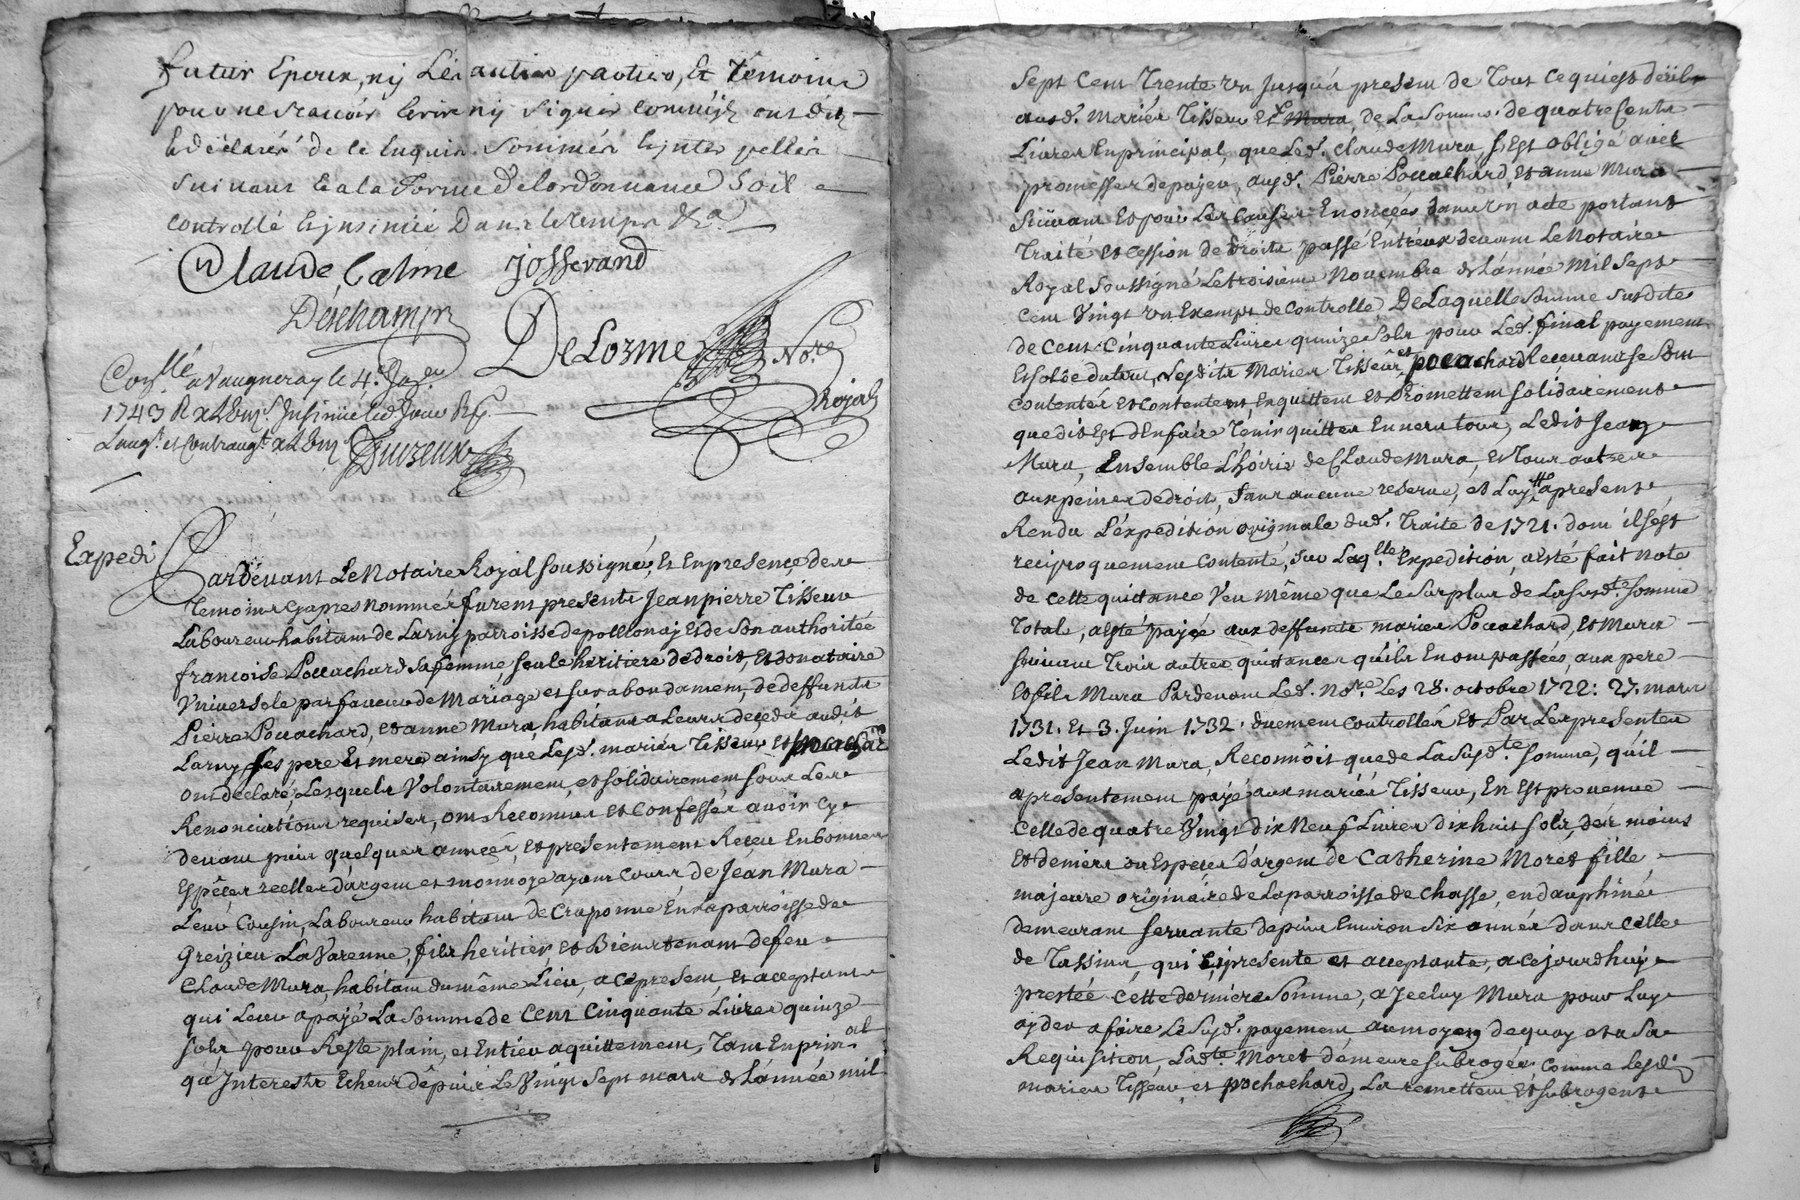 futur Epoux, ny Les autres parties, Et Temoins
pour ne scavoir Ecrire ny signer comme ilz ont dit
& déclaré de ce Enquis Sommés & jnterpellés
suivant & a la forme de lordonnance Soit
controllé & jnsinüé Dans le temps &a.
Claude Calme Josserand
Deschamps DeLorme Nore. Royal
Conllé a Vaugneray le 4e. Ja
1743 R Jnsinüé led. Jour R
Duizeux
Expedi
Pardevant Le Notaire Royal soussigné, Et En presence des
temoins cy apres Nommés furent presents Jean pierre Tisseur
Laboureur habitant de Larny parroisse de pollionay Et de Son authoritée
francoise Pocachard sa femme seule heritiere de droit, Et donataire
Vniverselle par faveur de Mariage et surabondament, de deffunts
Pierre Pocachard, et anne Mura, habitans a Leurs decedz audit
Larny ses pere Et mere ainsy que Lesd. mariés Tisseur et pocachard
ont déclaré, Lesquels Volontairement, et solidairement sous Les
Renonciations requises, ont Reconnus et confessés avoir cy
devant puis quelques années, et presentement Receu En bonnes
Espéces reelles d'argent et monnoye ayant cours de Jean Mura
Leur Cousin, Laboureur habitant de Craponne En La parroisse de
Greizieu La Varenne, fils heritier, et Bien tenant de feu
Claude Mura, habitant du même Lieu, a ce present, et acceptant
qui Leur a payé La Somme de Cent Cinquante Livres quinze
sols pour Reste plain, et Entier aquittement, Tant En prin.al
qu'Interests Echeus dépuis Le Vingt Sept mars de Lannée mil
Sept Cent Trente un Jusqu'a present de Tout ce qui est dû ils
ausd. Mariés Tisseur Et Mura de La Somme de quatre Cents
Livres En principal, que Led. Claude Mura, s'Est obligé avec
promesses de payer, ausd. Pierre Pocachard, et anne Mura
suivant Et pour Les Causes Enoncées dans un acte portant
Traité et Cession de droits passé Entreux devant Le Notaire
Royal Soussigné Le troisieme Novembre de L'année Mil Sept
Cent Vingt un Exempt de Controlle, De Laquelle Somme susdite
de Cent Cinquante Livres quinze Sols pour Led. final payement
Et solde du tout, Lesdits Mariés Tisseur et pocachard Recevant se Sont
Contentés Et Contentent En quittent et Promettent solidairement
que dit Est d'En faire Tenir quitte Envers tous, Ledit Jean
Mura, Ensemble L'hoirie de Claude Mura, Et Tous autres
aux peines de droit, sans aucune reserve, et Luy ont a present
Rendu L'éxpedition originale dud. Traité de 1721. dont il s'est
reciproquement Contenté, sur Laq.lle Expedition, a été fait note
de cette quittance Veu même que Le Surplus de La susd.te somme
Total, a esté payée aux deffunts mariés Pocachard, et Mura
suivant Trois autres quittances qu'ils En ont passées, aux pere
et fils Mura Pardevant Led. Nore. Les 28. octobre 1722: 27. mars
1731. Et 3. Juin 1732. duement Controllés Et Par Les presentes
Ledit Jean Mura, Reconnoit que de La susd.te Somme, qu'il
a presentement payé aux mariés Tisseur, En Est provenue
Celle de quatre Vingt dix Neuf Livres dix huit sols, des moins
Et deniers ou Espéces d'argent de Catherine Moret fille
majeure originaire de La parroisse de Chasse, en dauphiné
demeurant servante depuis Environ six années dans Celle
de Tassins, qui Cy presente et acceptante, a ce jourd'huy
prestée Cette derniére Somme, a Jceluy Mura pour Luy
ayder a faire Le susd. payement au moyen de quoy et a sa
Requisition, Lad.te Moret démeure subrogée Comme Lesd.
mariés Tisseur et pochachard, La remettent Et subrogent